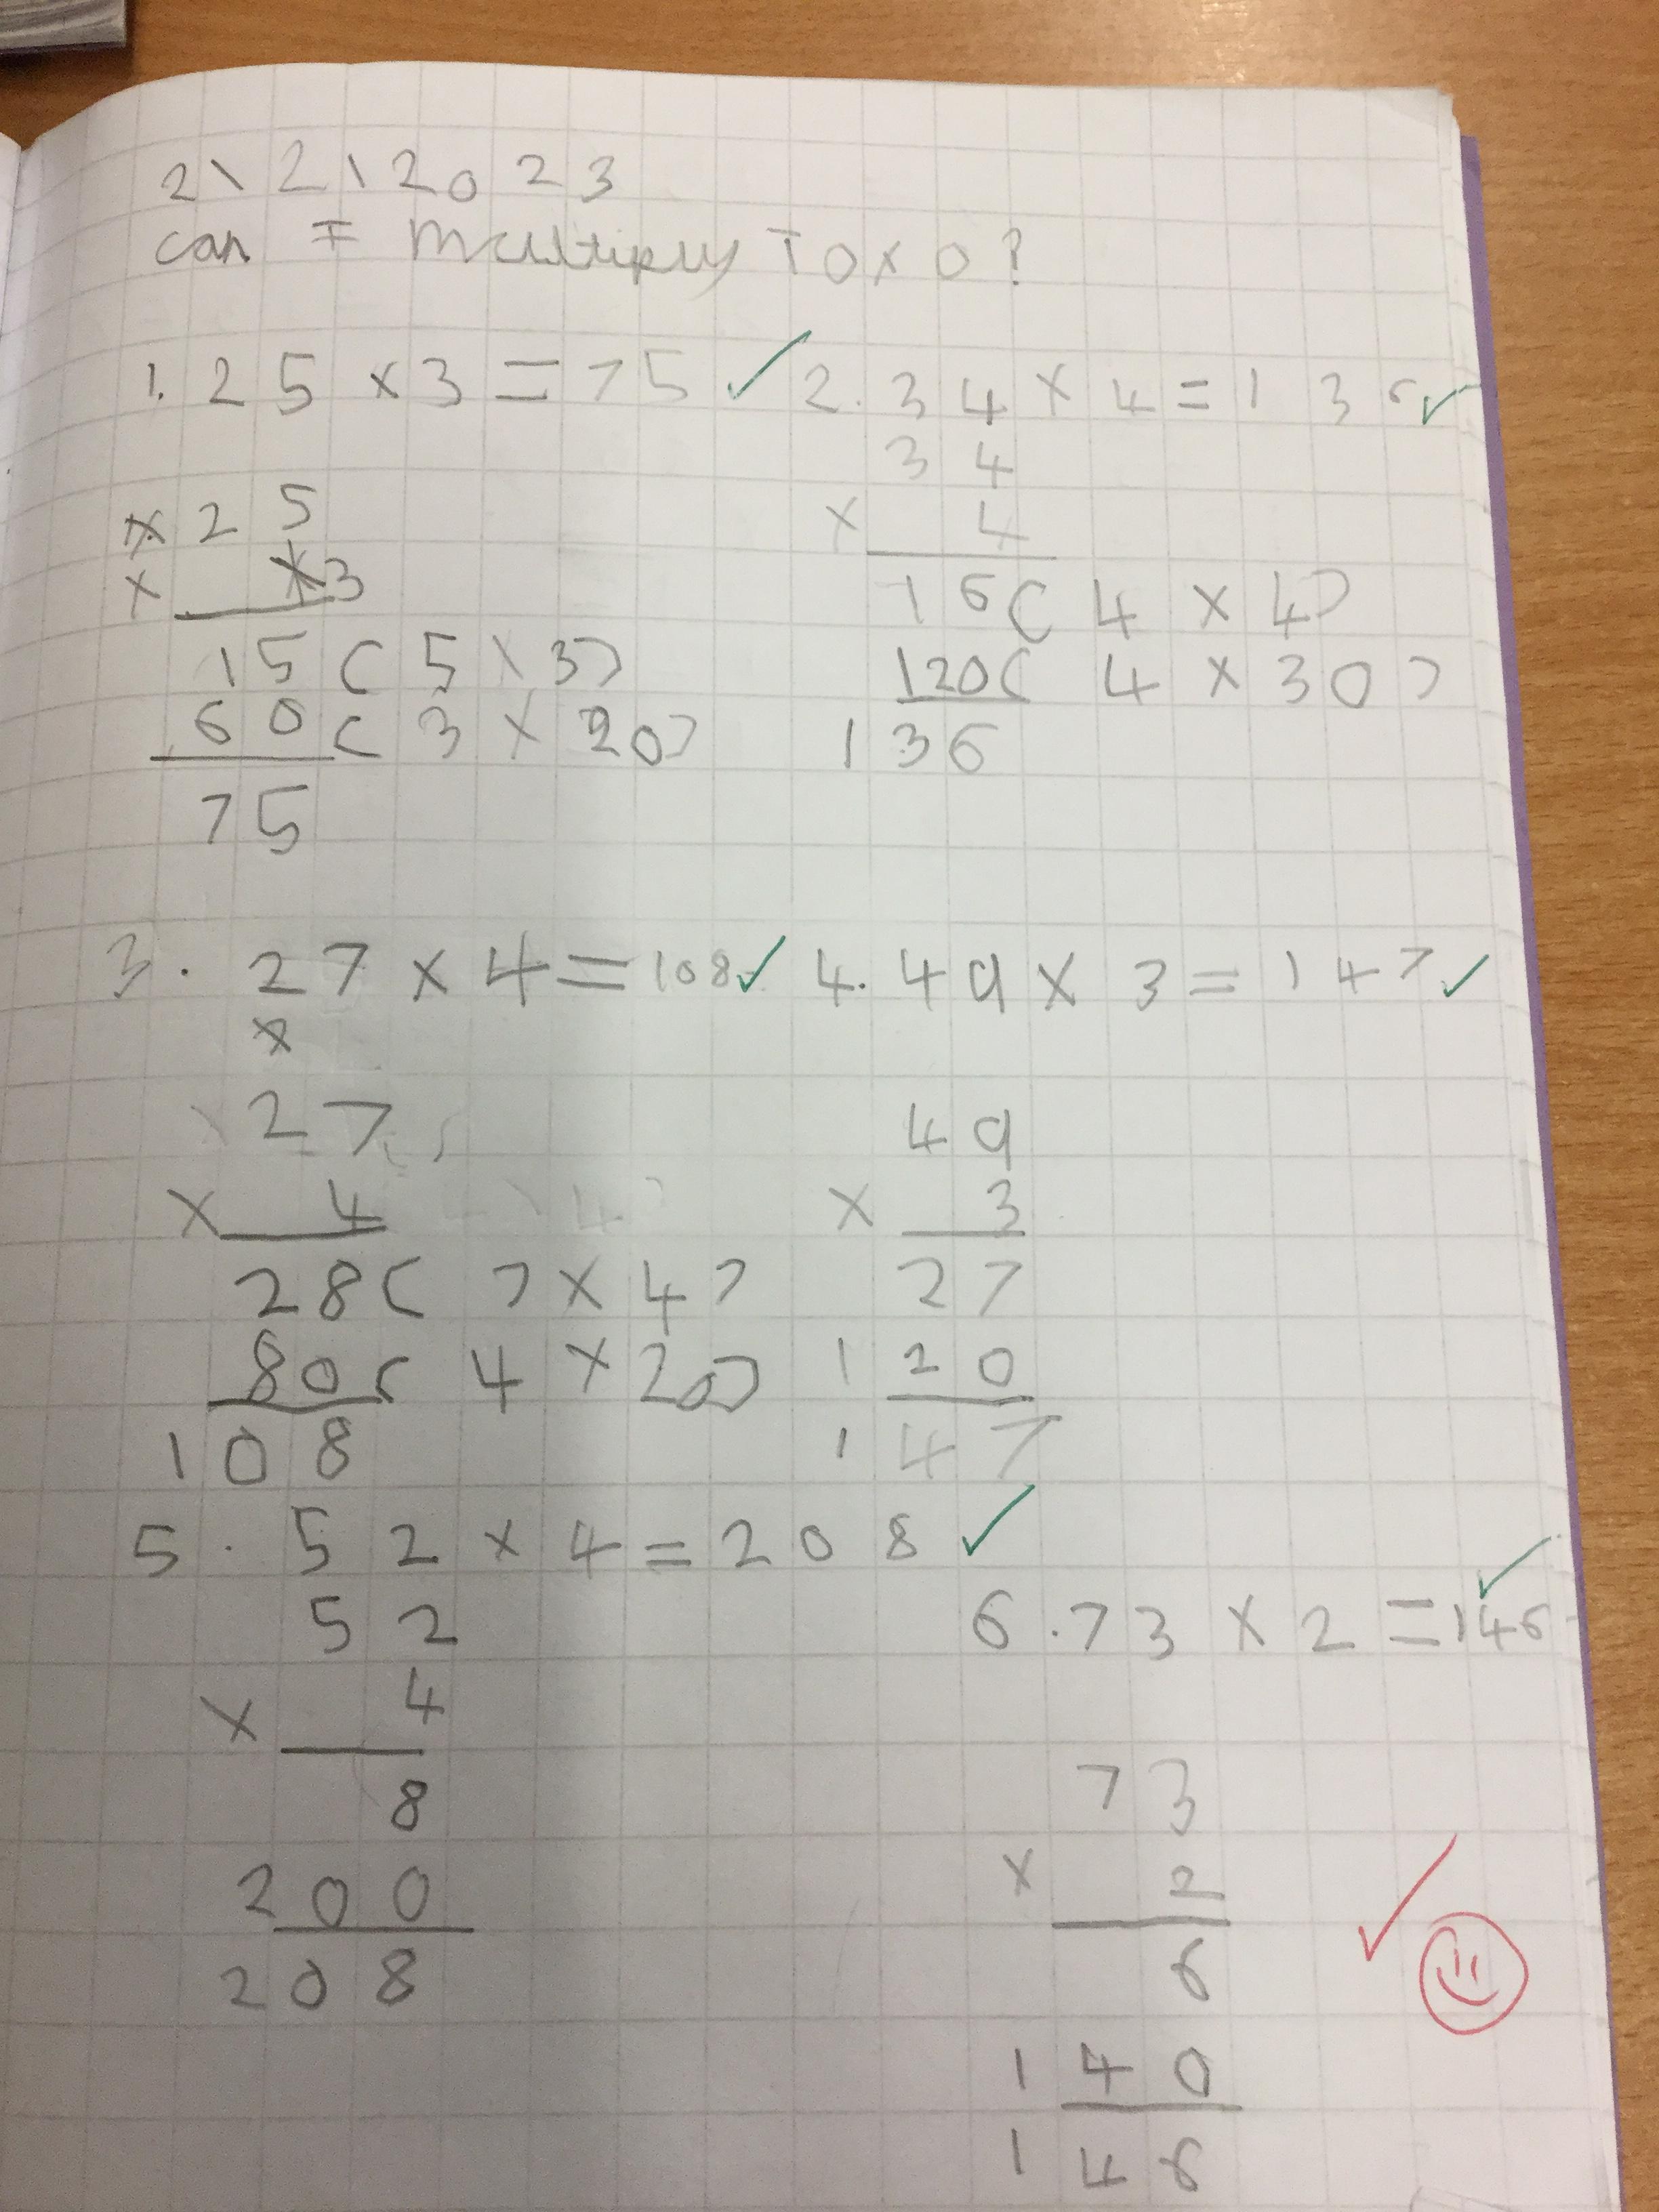 2\2\2023
can I multiply TOxO?
1. 25 x 3 = 75
x 25
x x3
15 ( 5 x 3)
60 ( 3 x 20)
75
2. 34 x 4 = 136
34
x 4
16 ( 4 x 4)
120 ( 4 x 30)
136
3. 27 x 4 = 108
x
27
x 4
28 ( 7 x 4)
80 ( 4 x 20)
108
4. 49 x 3 = 147
49
x 3
27
120
147
5. 52 x 4 = 208
52
x 4
8
200
208
6. 73 x 2 = 146
73
x 2
6
140
146